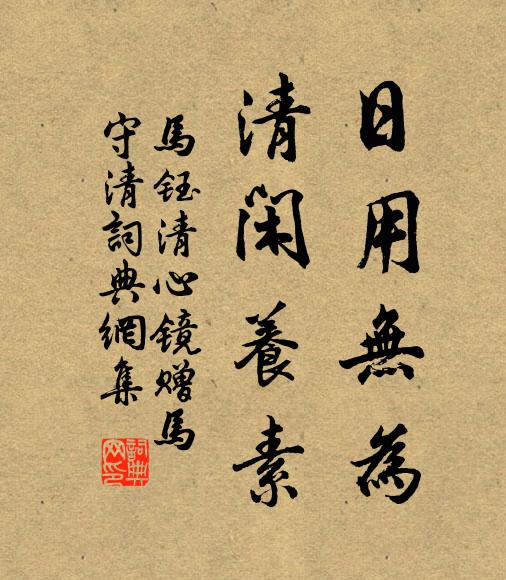 日用無為
清閑養素
馬鈺清心鏡贈馬
守清詞典網集
詞典網印